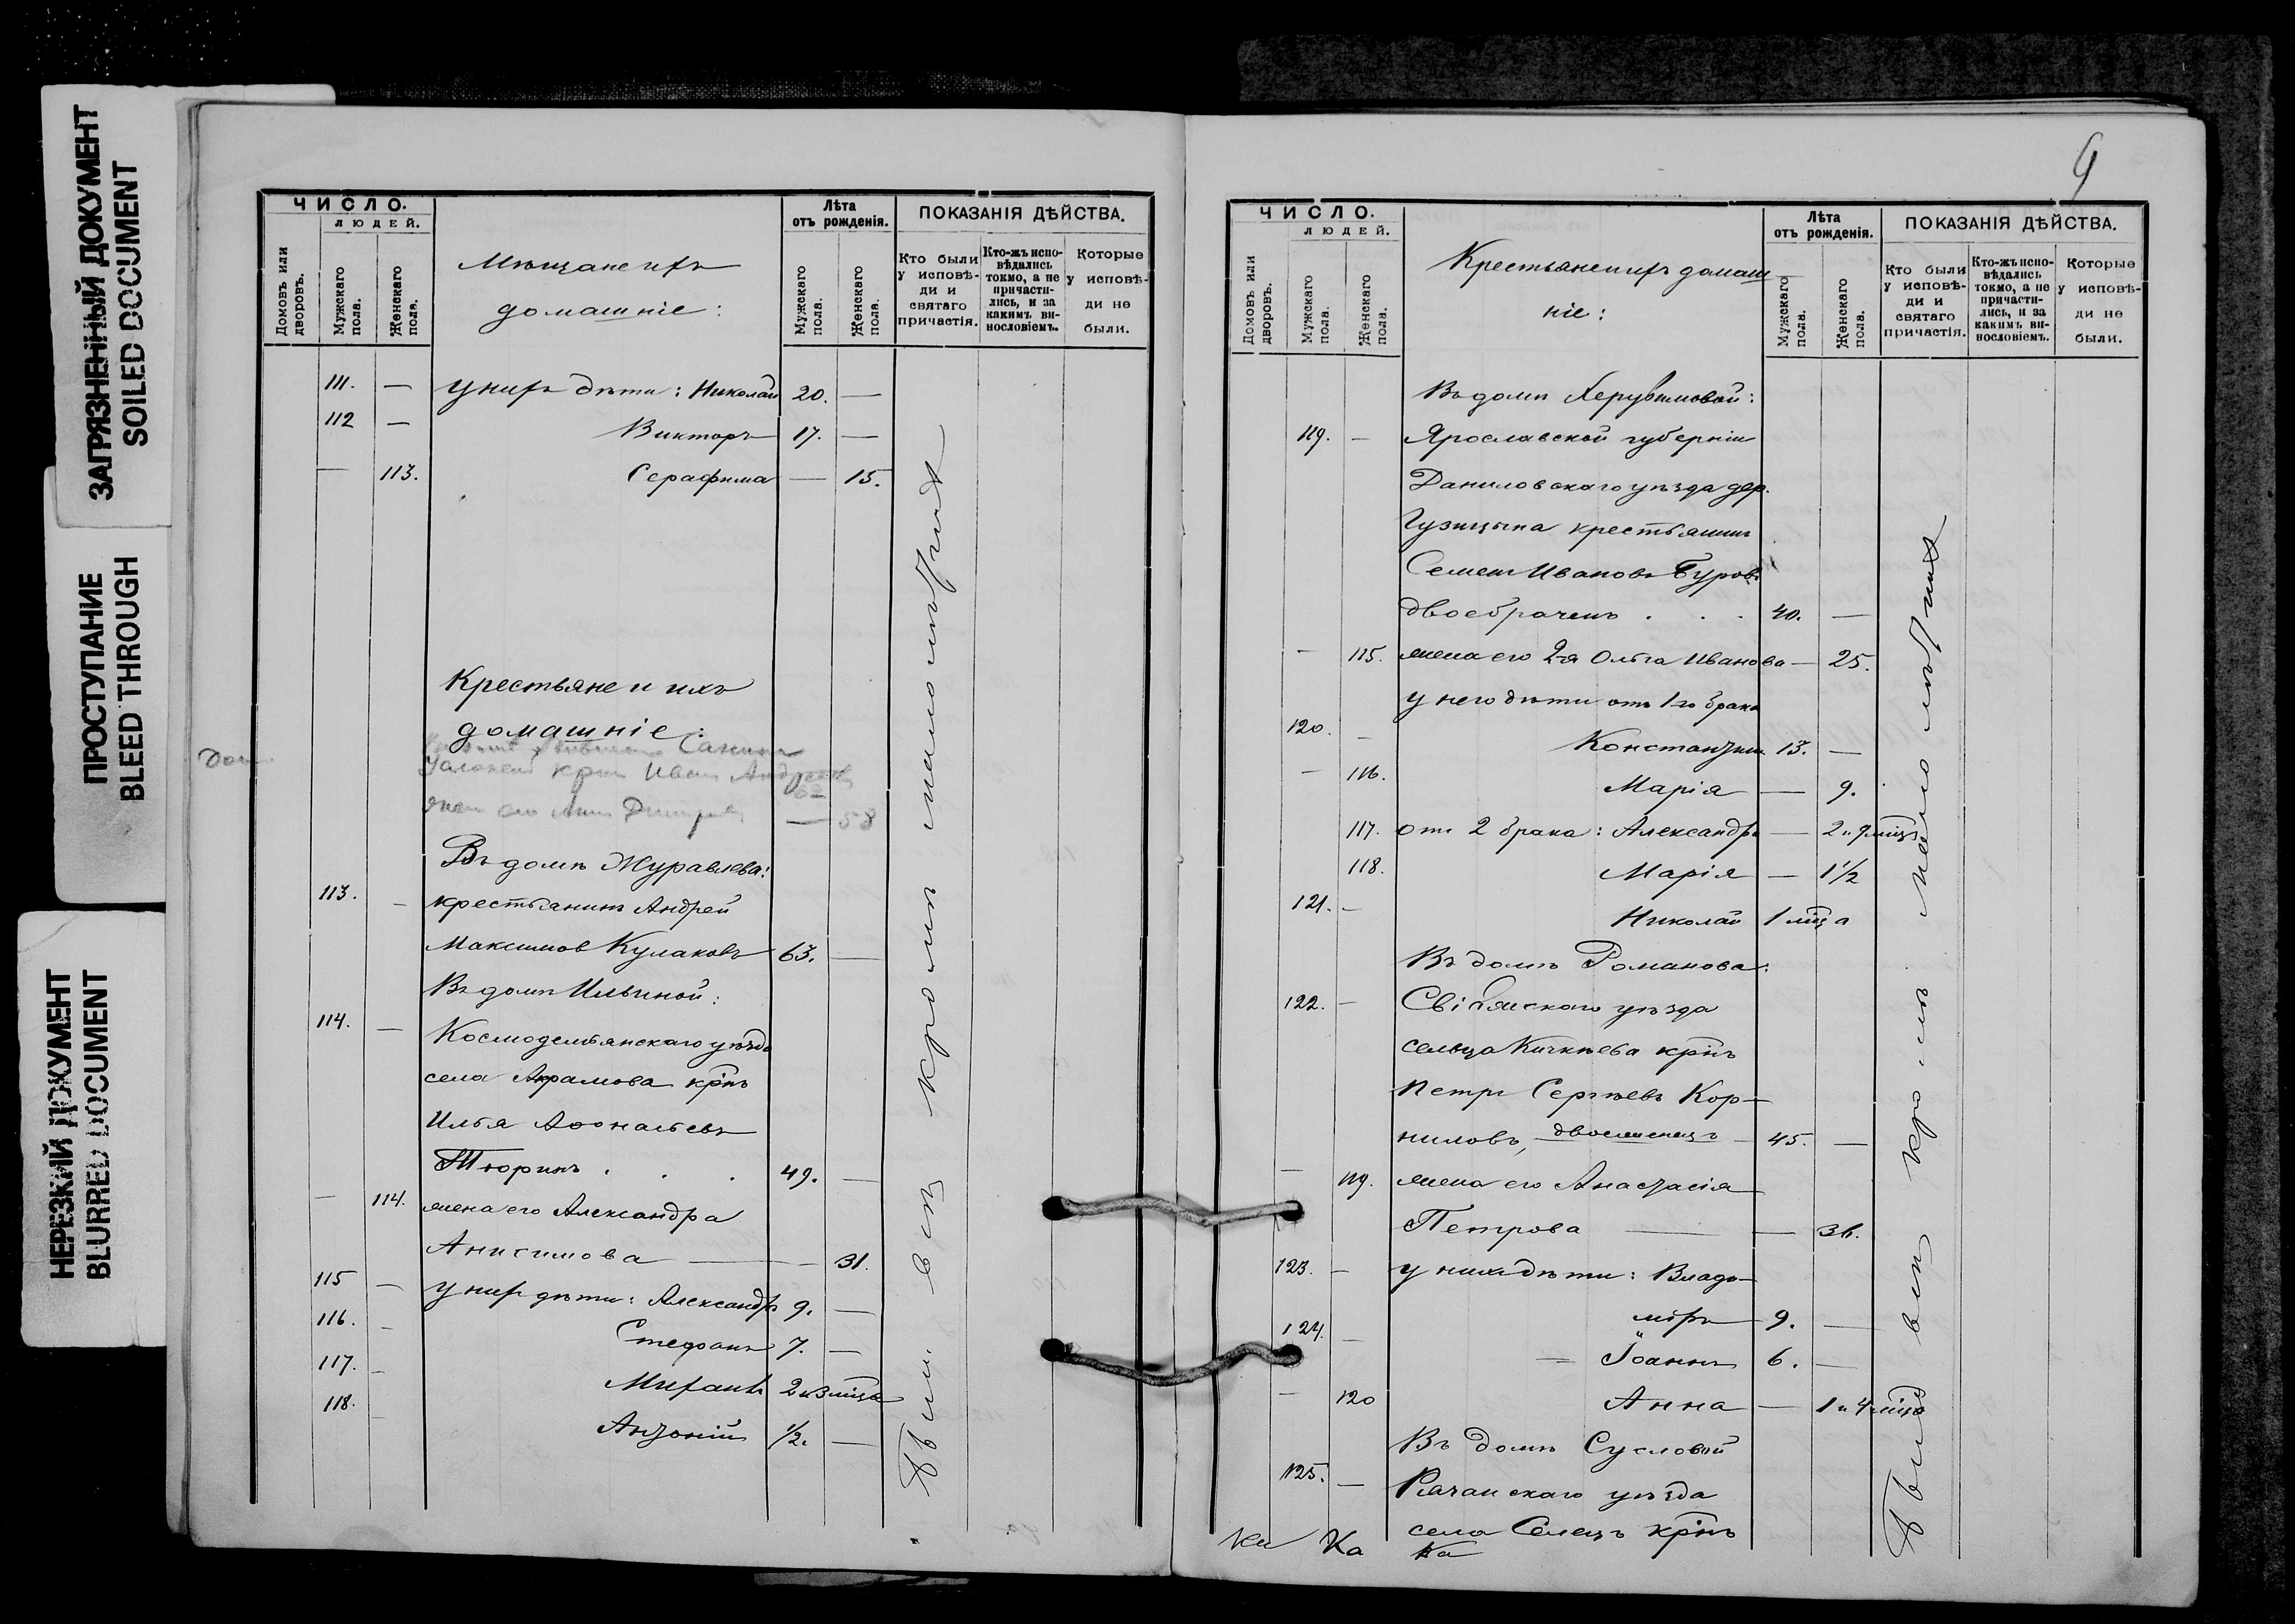 ЗАГРЯЗНЕННЫЙ ДОКУМЕНТ
SOILED DOCUMENT
ПРОСТУПАНИЕ
BLEED THROUGH
НЕРЕЗКИЙ ДОКУМЕНТ
BLURRED DOCUMENT
ЧИСЛО.
ЛЮДЕЙ.
Домовъ или дворовъ.
Мужскаго пола.
Женскаго пола.
Мѣщане и ихъ
домашніе:
Лѣта
отъ рожденія.
Мужскаго пола.
Женскаго пола.
ПОКАЗАНІЯ ДѢЙСТВА.
Кто были у исповѣ-ди и святаго причастія.
Кто-жъ испо-вѣдались токмо, а не причасти-лись, и за какимъ ви-нословіемъ.
Которые у исповѣ-ди не были.
111. — у нихъ дѣти: Николай 20. —
112 — Викторъ 17. —
— 113. Серафима — 15.
Крестьяне и ихъ
домашніе:
Санина
крест Иван Андреевъ
62
жена его Анна Дмитріева — 58
Въ домѣ Журавлева:
113. — крестьянинъ Андрей
Максимов Кулаковъ 63. —
Въ домѣ Ильиной:
114. — Космодемьянскаго уѣзда
села Акрамова крнъ
Илья Аѳонасьевъ
Тюринъ . . . 49. —
— 114. жена его Александра
Анисимова — — 31.
115 — у нихъ дѣти: Александръ 9. —
116. — Стефанъ 7. —
117. — Михаилъ 2 и 3 мѣца
118. — Антоній 1/2. —
Были всѣ кромѣ малолѣтнихъ
9
ЧИСЛО.
ЛЮДЕЙ.
Домовъ или дворовъ.
Мужскаго пола.
Женскаго пола.
Крестьяне и ихъ домаш
ніе:
Лѣта
отъ рожденія.
Мужскаго пола.
Женскаго пола.
ПОКАЗАНІЯ ДѢЙСТВА.
Кто были у исповѣ-ди и святаго причастія.
Кто-жъ испо-вѣдались токмо, а не причасти-лись, и за какимъ ви-нословіемъ.
Которые у исповѣ-ди не были.
Въ домѣ Херувимовой:
119. — Ярославской губерніи
Даниловскаго уѣзда дер.
Гузицына крестьянинъ
Семенъ Ивановъ Буровъ
двоебраченъ . . . 40. —
— 115. жена его 2-я Ольга Иванова — 25.
у него дѣти отъ 1-го брака
120. — Константинъ 13. —
— 116. Марія — 9.
117. отъ 2 брака: Александра — 2 и 9 мѣц
118. Марія — 1 1/2
121. — Николай 1 мѣца
Въ домѣ Романова:
122. — Свіяжскаго уѣзда
сельца Кичкѣева крнъ
Петръ Сергѣевъ Кор-
ниловъ, двоеженецъ — 45. —
— 119. жена его Анастасія
Петрова — — 36.
123. — у нихъ дѣти: Влади-
міръ 9. —
124. — Іоаннъ 6. —
— 120 Анна — 1 и 4 мѣца
Въ домѣ Сусловой
125. — Казанскаго уѣзда
села Селецъ крнъ
Ка Ка Ка
Были всѣ кромѣ малолѣтнихъ